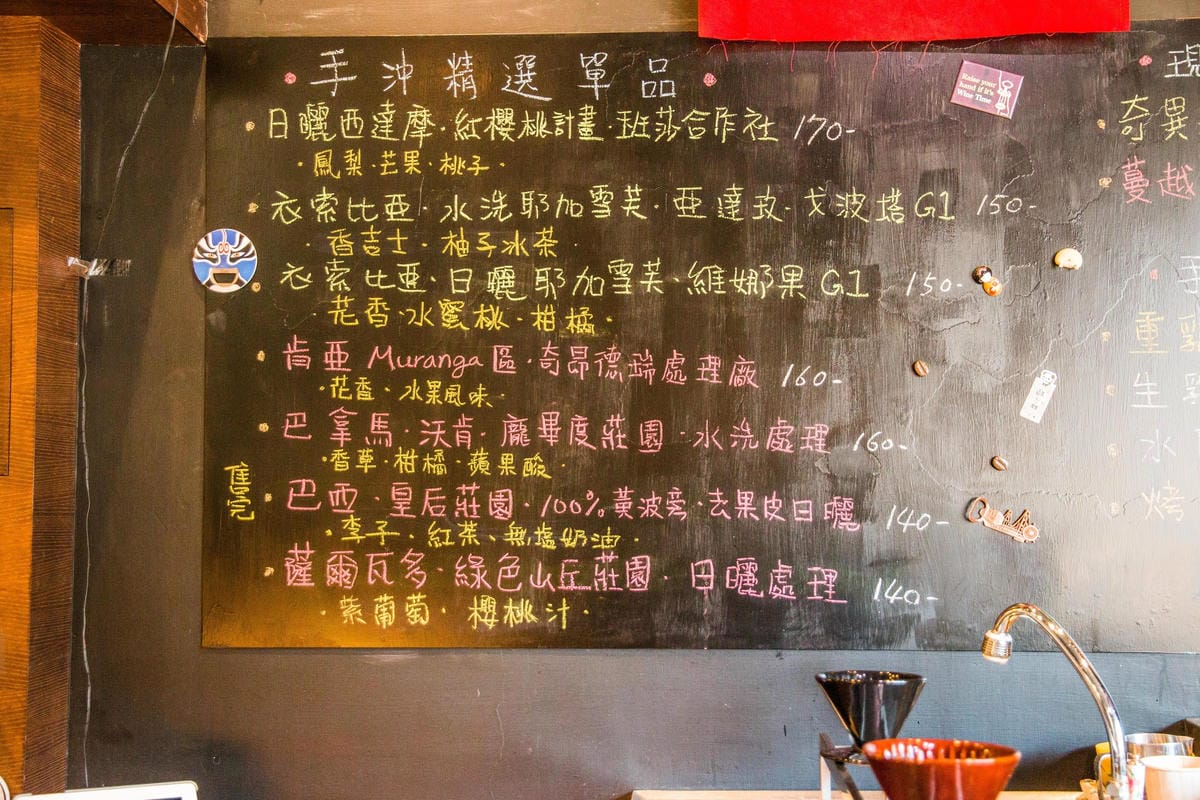 手沖精選單品
日曬西達摩·紅櫻桃計畫·班莎合作社 170-
·鳳梨·芒果·桃子·
衣索比亞·水洗耶加雪芙·亞達玫·戈波塔G1 150-
·香吉士·柚子冰茶·
衣索比亞、日曬耶加雪芙·維娜果G1 150-
·花香·水蜜桃·柑橘·
肯亞 Muranga區·奇昂德瑞處理廠 160-
·花香、水果風味·
巴拿馬·沃肯·龐畢度莊園·水洗處理 160-
·香草·柑橘·蘋果酸·
售完
巴西·皇后莊園·100%黃波旁·去果皮日曬 140-
·李子·紅茶、無塩奶油·
薩爾瓦多·綠色山丘莊園·日曬處理 140-
·紫葡萄·櫻桃汁·
Raise your
hand if it's
Wine Time
現
奇異
蔓越
手
重乳
生乳
水
烤